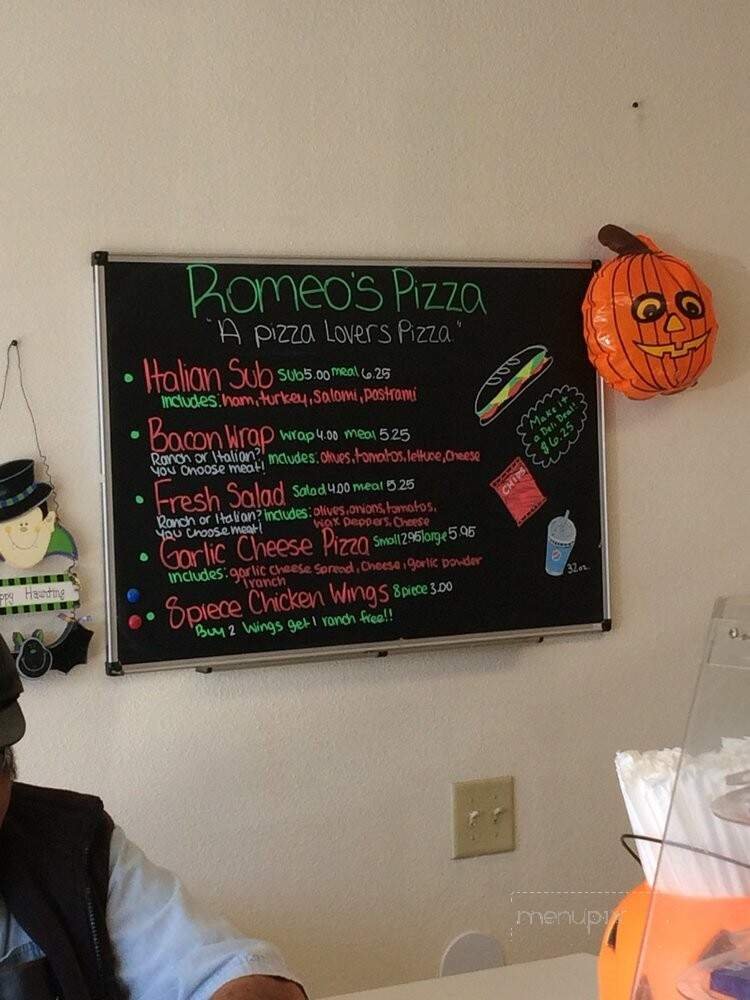 Romeo's Pizza
"A pizza Lovers Pizza"
Italian Sub sub 5.00 meal 6.25
includes: ham, turkey, Salami, pastrami
Bacon Wrap wrap 4.00 meal 5.25
Ranch or Italian? includes: olives, tomatos, lettuce, cheese
you choose meat!
Fresh Salad Salad 4.00 meal 5.25
Ranch or Italian? includes: olives, onions, tomatos,
You choose meat! wax peppers, cheese
Garlic Cheese Pizza small 2.95 large 5.95
includes: garlic cheese spread, cheese, garlic powder
1 ranch
8 piece Chicken Wings 8 piece 3.00
Buy 2 wings get 1 ranch free!!
Make it
a Deli Deal!
$6.25
CHIPS
32oz.
ppy Haunting
menupix